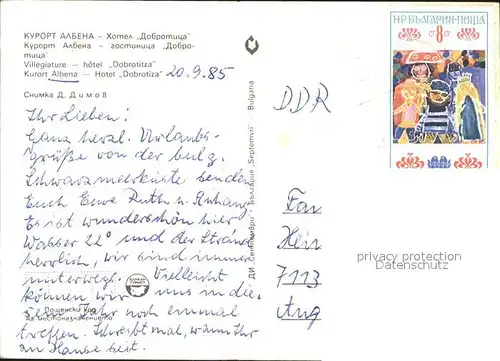 КУРОРТ АЛБЕНА – Хотел „Добротица"
Курорт Албена – гостиница „Добро-
тица"
Villegiature – hôtel „Dobrotitza"
Kurort Albena – Hotel „Dobrotiza"
20.9.85
Снимка Д. Димов
Ihr Lieben!
Ganz herzl. Urlaubs-
grüße von der bulg.
Schwarzmeerküste senden
Euch Eure Ruth u. Anhang.
Es ist wunderschön hier
Wasser 22° und der Strand
herrlich, wir sind immer
unterwegs. Vielleicht
können wir uns in die-
sem Jahr noch einmal
treffen. Schreibt mal, wann Ihr
zu Hause seit.
Пощенски код
на местоназначението
ДИ „Септември" България „Septemvri" Bulgaria
НР БЪЛГАРИЯ·ПОЩА
8
DDR
Fam
7113
privacy protection
Datenschutz